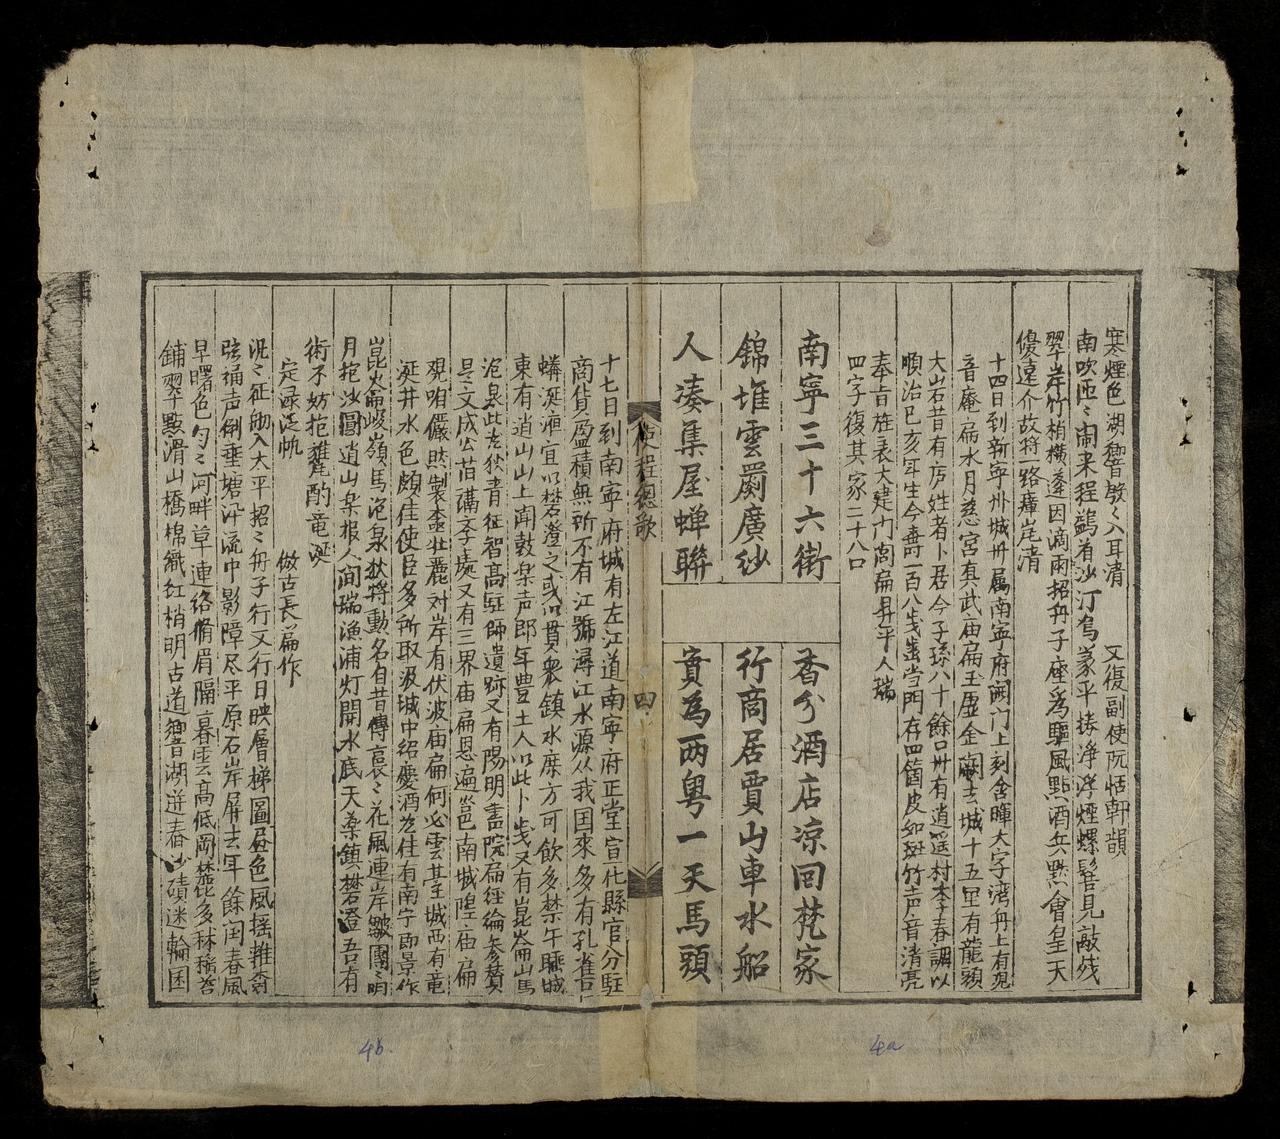 寒煙色湖響發〻入耳清 又復副使阮恬軒韻
南吹匝〻南来程鷁首沙汀鳥篆平捲净浮煙螺髻見敲残
翠岸竹梢橫蓬因滴雨招舟子座為驅風點酒兵默會皇天
優遠介故将一路瘴嵐清
十四日到新寧州城州属南寧府闕门上刻含暉大字湾舟上有观
音庵扁水月慈宫真武庙扁玉虚金闕去城十五里有龍頭
大岩昔有庐姓者卜居今子孫八十餘口州有逍遥村李春調以
順治己亥年生今壽一百八歲齒当門存四箇皮如斑竹声音清亮
奉旨旌表大建门閭扁昇平人瑞
四字復其家二十八口
南寧三十六街 香分酒店凉回梵家
錦堆雲罽廣紗 行商居賈山車水船
人凑集屋蝉聯 實為两粤一天馬頭
使程總歌 四
十七日到南寧府城有左江道南寧府正堂宣化縣官分駐
商貨盈積無所不有江號潯江水源从我国來多有孔雀
蟒涎瘴宜以礬澄之或以貫衆鎮水庶方可飲多禁午曬城
東有逍山山上南鼓楽声郎年豊土人以此卜歲又有崑崙山馬
沱泉此去狄青征智高駐師遺跡又有陽明書院扁經綸參賛
是文成公苗講孝處又有三界庙扁恩遍邕南城隍庙扁
覌咱儼然製奎壮麗对岸有伏波庙扁何必雲臺城西有竜
涎井水色頗佳使臣多所取汲城中绍慶酒尨佳有南宁即景作
崑火崙峻嶺馬沱泉狄将勳名自昔傳裊〻花風連岸皺團〻明
月抱沙圓逍山楽报人间瑞漁浦灯開水底天桼鎮礬澄吾有
術不妨抱甕酌竜涎
定禄泛帆 倣古長篇作
泥〻征舠入大平招〻舟子行又行日映層梯圖晝色風揺雜斎
弦诵声倒垂塘沜流中影障尽平原石岸屏去年餘闰春風
早曙色勻〻河畔草連络脩眉隔暮雲高低岡麓多秫穑苔
鋪翠點滑山橋棉織红梢明古道響湖迸春沙磧迷輪囷
4b. 4a